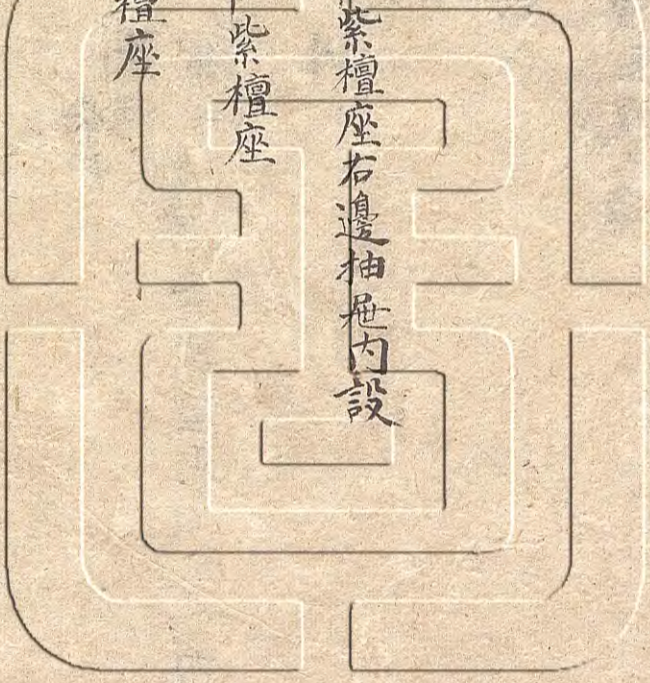 紫檀座右邊抽屜内設
紫檀座
檀座